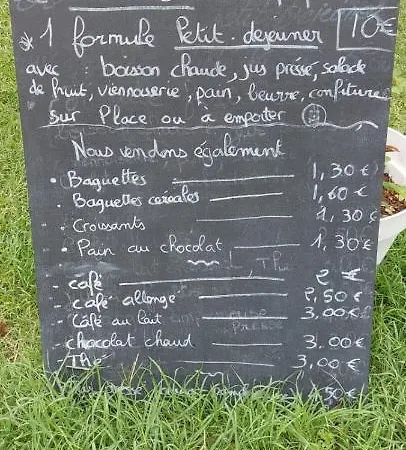 * 1 formule Petit. dejeuner 10€
avec : boisson chaude, jus pressé, salade
de fruit, viennoiserie, pain, beurre, confitures
sur Place ou à emporter
Nous vendons également
• Baguettes 1,30 €
• Baguettes céréales 1,60 €
- Croissants 1,30 €
- Pain au chocolat 1,30 €
- café 2 €
- café allongé 2,50 €
- Café au lait 3,00 €
- chocolat chaud 3.00 €
- Thé 3,00 €
4,50 €